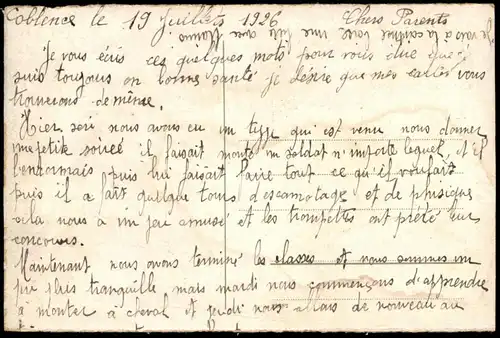 Coblence le 19 Juillets 1926 Chers Parents
Je vous écris ces quelques mots pour vous dire que je
suis toujours en bonne santé je désire que mes cartes vous
trouverons de même.
Hier soir nous avons eu un type qui est venu nous donner
une petite soirée il faisait monté un soldat n'importe lequel, et il
l'endormais puis lui faisait faire tout ce qu'il voulait
puis il a fait quelque tours d'escamotage et de phisique
cela nous a un peu amusé et les trompettes ont prété leur
concours.
Maintenant nous avons terminé les classes et nous sommes un
peu plus tranquille mais mardi nous commençons d'apprendre
à monter à cheval et jeudi nous allons de nouveau au